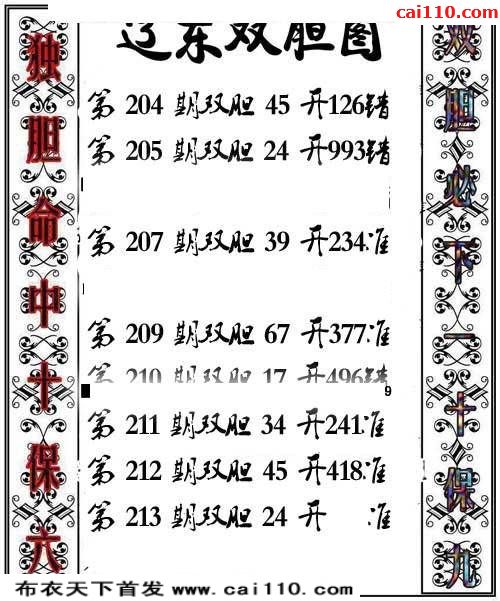 cai110.com
辽东双胆图
独胆命中十保六
双胆必下一十保九
第 204 期双胆 45 开126错
第 205 期双胆 24 开993错
第 207 期双胆 39 开234准
第 209 期双胆 67 开377准
第 210 期双胆 17 开496错
9
第 211 期双胆 34 开241准
第 212 期双胆 45 开418准
第 213 期双胆 24 开 准
布衣天下首发 www.cai110.com